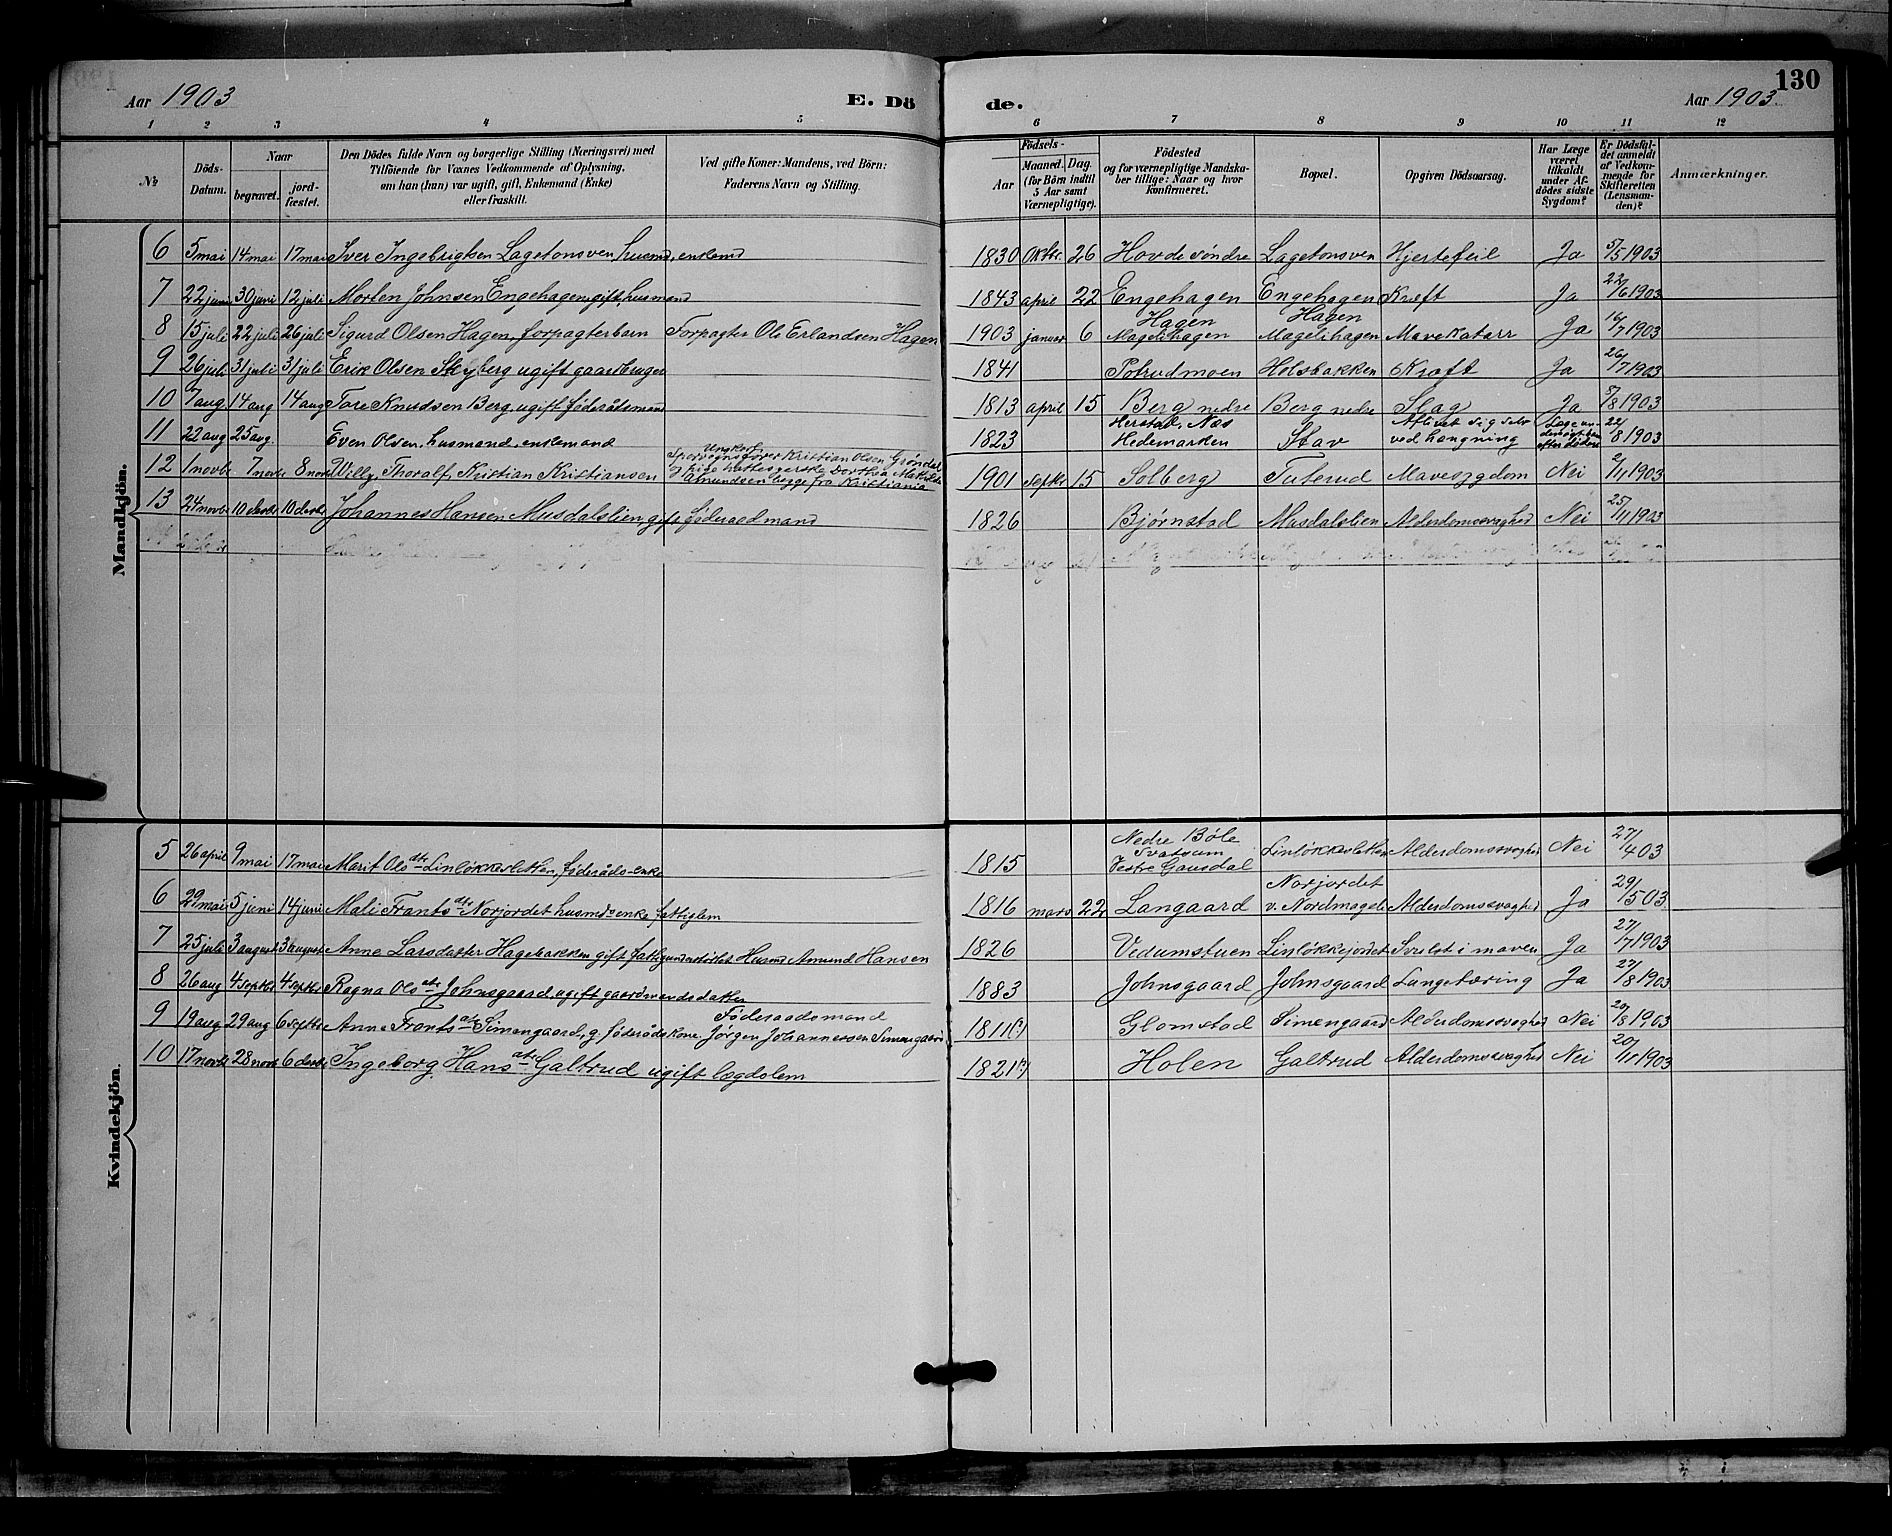 130
Aar 1903
E. Dö
de.
Aar 1903.
1 2 3 4 5 6 7 8 9 10 11 12
№
Döds-
Datum.
Naar
begravet.
jord-
fæstet.
Den Dödes fulde Navn og borgerlige Stilling (Næringsvei) med
Tilföiende for Voxnes Vedkommende af Oplysning,
om han (hun) var ugift, gift, Enkemand (Enke)
eller fraskilt.
Ved gifte Koner: Mandens, ved Börn:
Faderens Navn og Stilling.
Födsels-
Aar
Maaned.
Dag.
(for Börn indtil
5 Aar samt
Værnepligtige).
Födested
og for værnepligtige Mandska-
ber tillige: Naar og hvor
konfirmeret.
Bopæl.
Opgiven Dödsaarsag.
Har Læge
været
tilkaldt
under Af-
dödes sidste
Sygdom?
Er Dödsfal-
det anmeldt
af Vedkom-
mende for
Skifteretten
(Lensman-
den)?
Anmærkninger.
Mandkjön.
6 5 mai 14 mai 17 mai Iver Ingebrigtsen Lagetonsven, husmd, enkemd 1830 Oktbr. 26 Hovde söndre Lagetonsven Hjertefeil Ja 5/5 1903
7 22 juni 30 juni 12 juli Morten Johnsen Engehagen gift husmand 1843 april 22 Engehagen Engehagen Kræft Ja 22/6 1903
Hagen Hagen
8 15 juli 22 juli 26 juli Sigurd Olsen Hagen, forpagterbarn Forpagter Ole Erlandsen Hagen 1903 januar 6 Magelihagen Magelihagen Mavekatarr Ja 16/7 1903
9 26 juli 31 juli 31 juli Erik Olsen ugift gaardbruger 1841 Potrudmoen Holsbakken Kræft Ja 26/7 1903
10 7 aug 14 aug 14 aug Tore Knudsen Berg, ugift föderåtsmand 1813 april 15 Berg nedre Berg nedre Slag Ja 8/8 1903
11 22 aug 25 aug. Even Olsen, husmand, enkemand 1823 Herstad, Næs
Hedemarken Stav Aflivet sig selv
ved hængning
efter döden 22/8 1903
Ungkarl
Sporvognsförer Kristian Olsen Gröndal
12 1 novbr 7 novbr 8 novbr Willy Thoralf Kristian Kristiansen og pige Dorthea Mathilde
Amundsen begge fra Kristiania 1901 septbr 15 Solberg Tuterud Mavesygdom Nei 2/11 1903
13 24 novbr 10 decbr 10 decbr Johannes Hansen Musdalslien gift föderaadmand 1826 Bjørnstad Musdalslien Alderdomssvaghed Nei 25/11 1903
Kvindekjön.
5 26 april 9 mai 17 mai Marit Olsdtr Linlökkesletten, föderåds-enke 1815 Nedre Böle
Svatsum
Vestre Gausdal Linlökkesletten Alderdomssvaghed Nei 27/4 03
6 29 mai 5 juni 14 juni Mali Frantsdtr Norjordet husmdsenke fattiglem 1816 mars 22 Langaard Norjordet
v. Nordmageli Alderdomssvaghed Ja 29/5 03
7 25 juli 3 august 3 august Anne Larsdatter Hagebakken gift fattigunderstöttet Husmd Amund Hansen 1826 Vedumstuen Linlökkejordet Svulst i maven Ja 27/7 1903
8 26 aug 4 septbr 4 septbr Ragna Olsdtr Johnsgaard, ugift gaardmandsdatter 1883 Johnsgaard Johnsgaard Lungetæring Ja 27/8 1903
Föderaadsmand
9 19 aug 29 aug 6 septbr Anne Frantsdtr Simengaard, g. föderådskone. Jørgen Johannessen Simengaard 1811(?) Glomstad Simengaard Alderdomssvaghed Nei 20/8 1903
10 17 novbr 28 novbr 6 decbr Ingeborg Hansdtr Galtrud ugift lægdslem 1821(?) Holen Galtrud Alderdomssvaghed Nei 20/11 1903